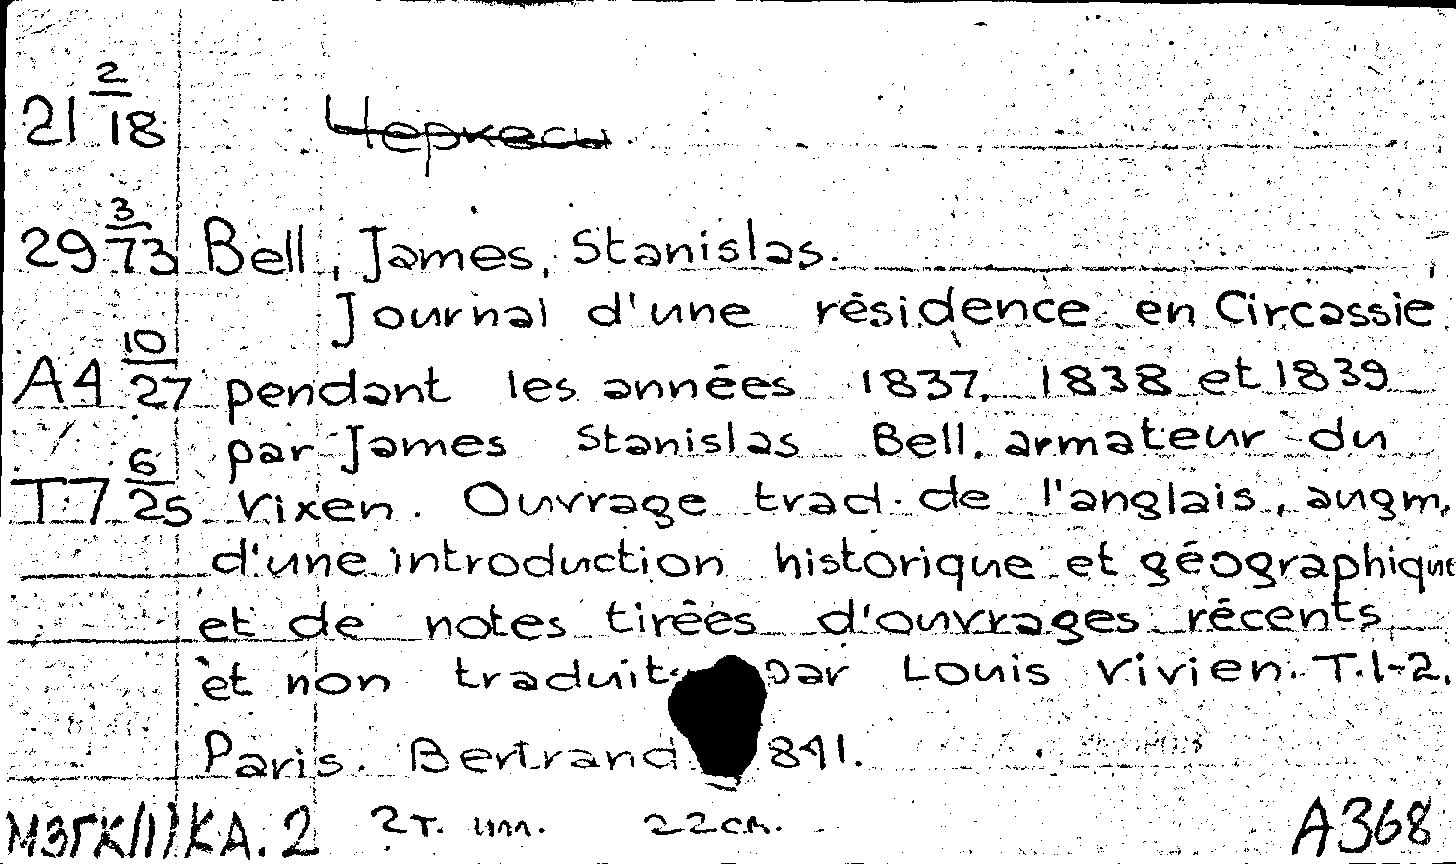 21 2/18 Черкесы
29 3/73 Bell, James, Stanislas.
Journal d'une résidence en Circassie
A4 10/27 pendant les années 1837, 1838 et 1839
par James Stanislas Bell, armateur du
T.7 6/25 Vixen. Ouvrage trad. de l'anglais, augm.
d'une introduction historique et géographique
et de notes tirées d'ouvrages récents
et non traduits par Louis Vivien. T.1-2.
Paris. Bertrand 1841.
МЗГК/1/КА.2 2т. илл. 22см. A368